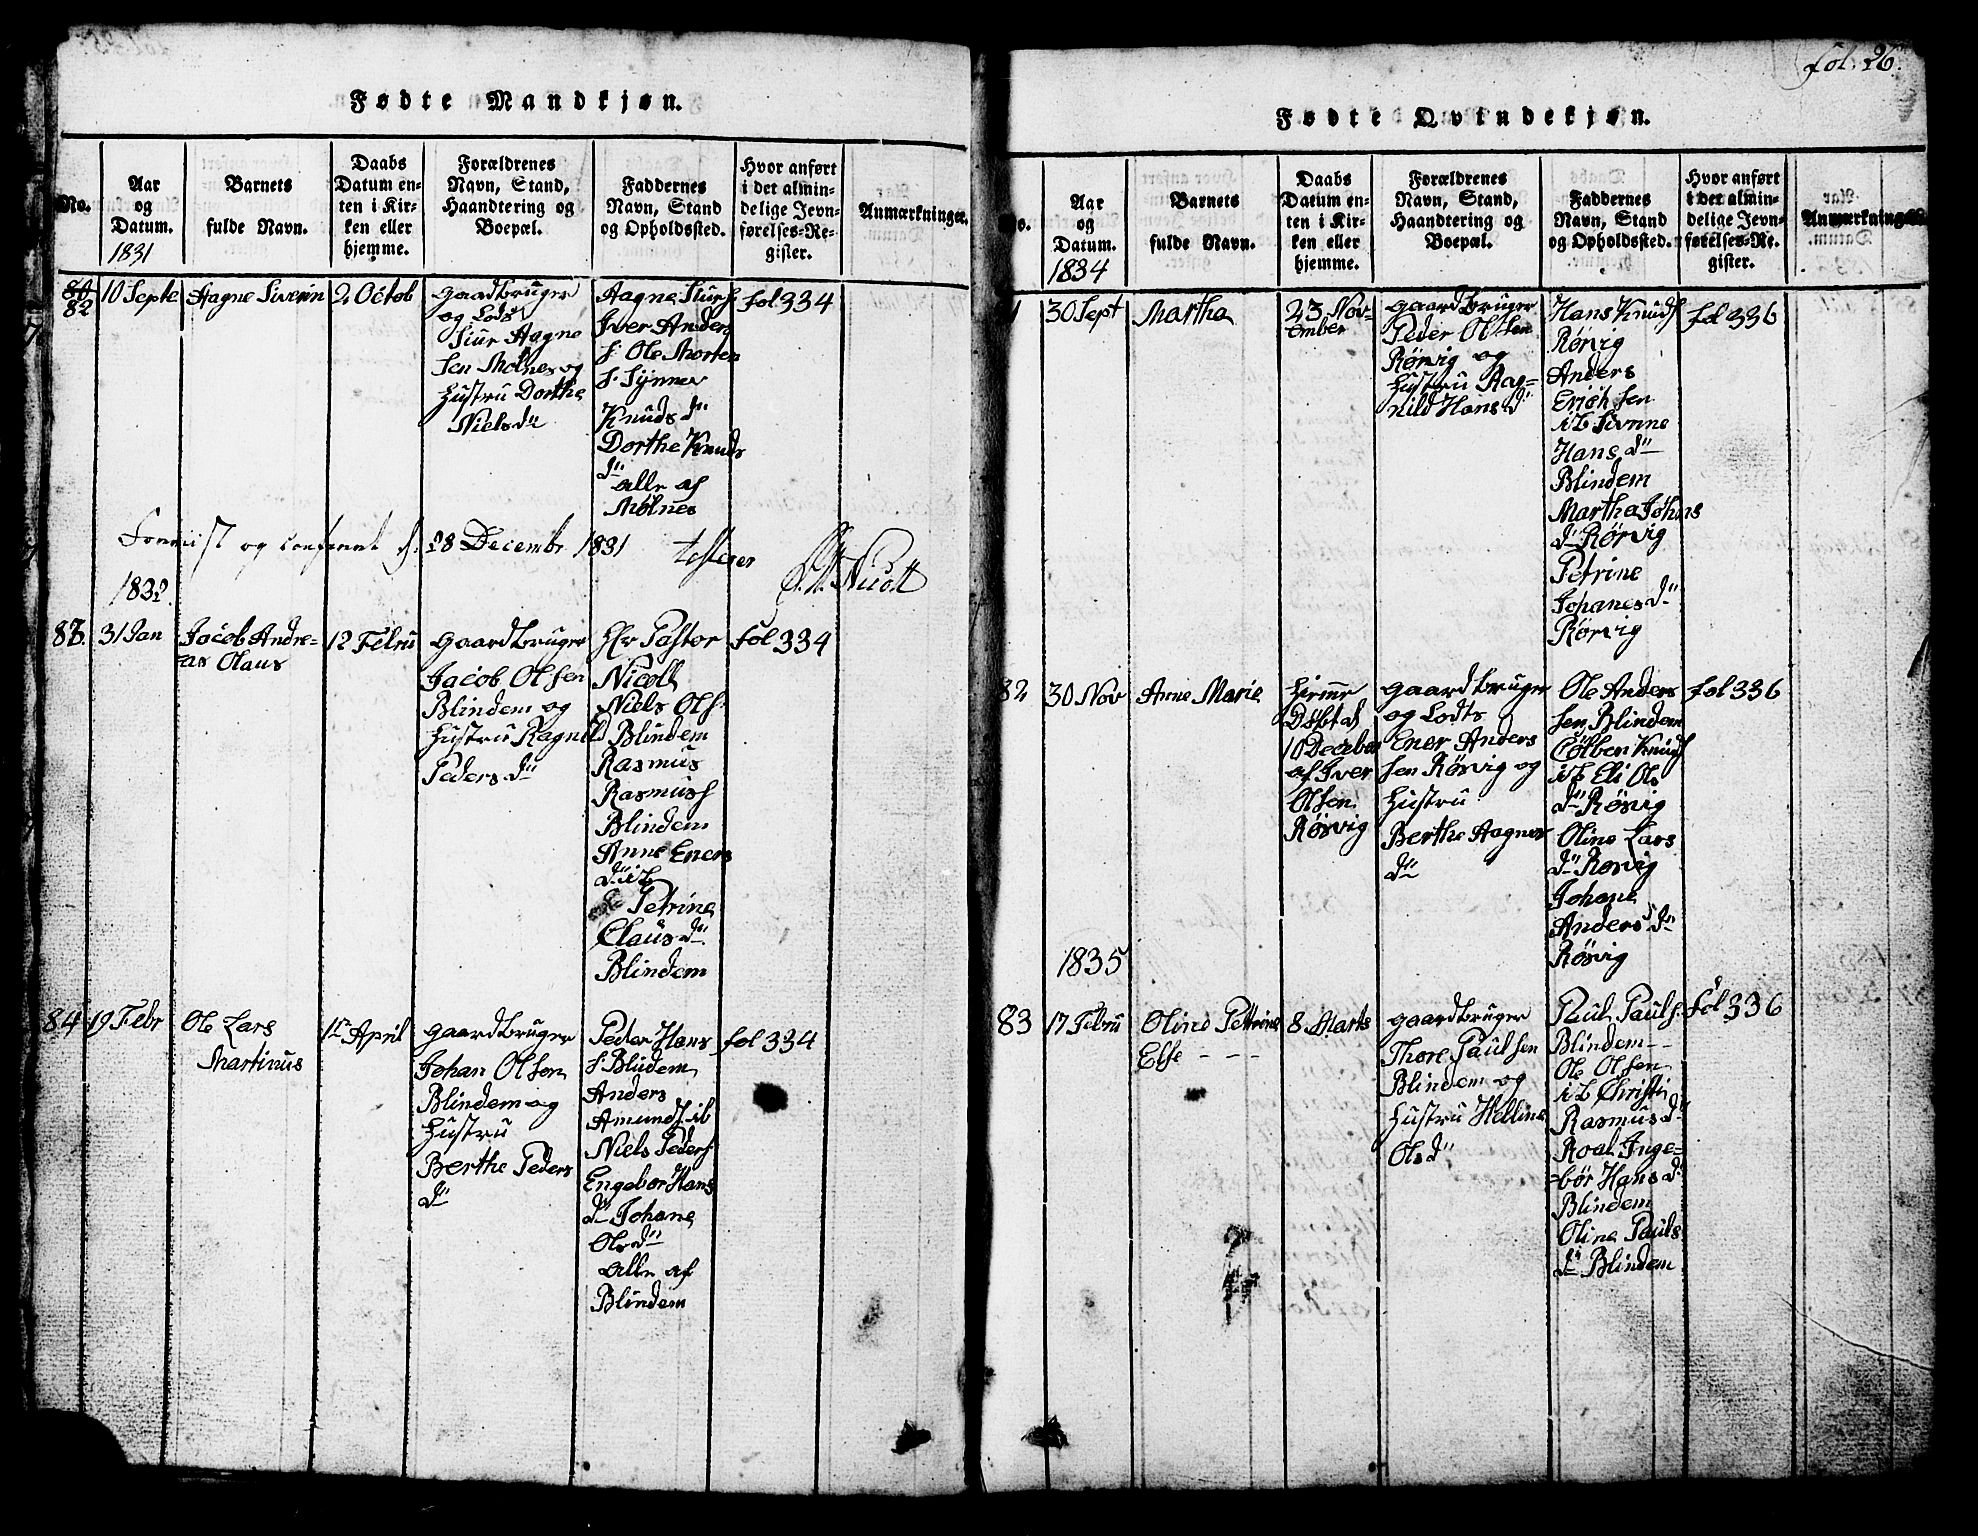 Fødte Mandkjøn.
No.
Aar
og
Datum.
1831
Barnets
fulde Navn.
Daabs
Datum en-
ten i Kir-
ken eller
hjemme.
Forældrenes
Navn, Stand,
Haandtering og
Boepæl.
Faddernes
Navn, Stand
og Opholdssted.
Hvor anført
i det almin-
delige Jevn-
førelses-Re-
gister.
Anmærkninger.
82
10 Septe
Aagne Siverin
2 Octob
gaardbruger
og Lods
Siur Aagne
sen Molnes og
Hustru Dorthe
Niels dr
Aagne Siurs
Iver Anders
s. Ole Morten
s. Synnev
Knuds dr
Dorthe Knuds
dr
alle af
Molnes
fol 334
og conferert d. 28 Decembr 1831 testerer
1832.
83.
31 Jan
Jacob Andre-
as Olaus
12 Febru
gaardbruger
Jacob Olsen
Blindem og
Hustru Ragnild
Peders dr
Hr Pastor
Nicoll
Niels Ols.
Blindem
Rasmus
Rasmuss
Blindem
Anne Eners
dr ib
Petrine
Claus dr.
Blindem
fol 334
84
19 Febr
Ole Lars
Martinus
1ste April
gaardbruger
Johan Olsen
Blindem og
Hustru
Berthe Peders
dr
Peder Hans
s. Blindem
Anders
Amunds ib
Niels Peders
Engebor Hans
dr Johane
Ols dr
alle af
Blindem
fol 334
fol. 26.
Fødte Qvindekjøn.
No.
Aar
og
Datum.
1834
Barnets
fulde Navn.
Daabs
Datum en-
ten i Kir-
ken eller
hjemme.
Forældrenes
Navn, Stand,
Haandtering og
Boepæl.
Faddernes
Navn, Stand
og Opholdssted.
Hvor anført
i det almin-
delige Jevn-
førelses-Re-
gister.
Anmærkninger.
1
30 Sept
Martha
23 Nov-
ember
gaardbruger
Peder Olsen
Rørvig og
Hustru Rag-
nild Hans dr
Hans Knuds
Rørvig
Anders
Erich sen
ib Sivnne
Hans dr
Blindem
Martha Johns
dr Rørvig
Petrine
Johanes dr
Rørvig
fol 336
82
30 Nov
Anne Marie
Hjemme
Døbt d
10 December
af Iver
Olsen
Rørvig
gaardbruger
og Lodts
Ener Anders
sen Rørvig og
Hustru
Berthe Aagnes
dr
Ole Anders
sen Blindem
Colben Knuds
ib Eli Ols
dr Rørvig
Oline Lars
dr Rørvig
Johane
Anders dr
Rørvig
fol 336
1835
83
17 Febru
Oline Pettrine
Else - - -
8 Marts
gaardbruger
Thore Paulsen
Blindem og
Hustru Helline
Ols dr
Paul Pauls.
Blindem--
Ole Olsen
ib Christi
Rasmus dr
Roal Inge-
bør Hans dr
Blindem
Oline Pauls
dr Blindem
fol 336